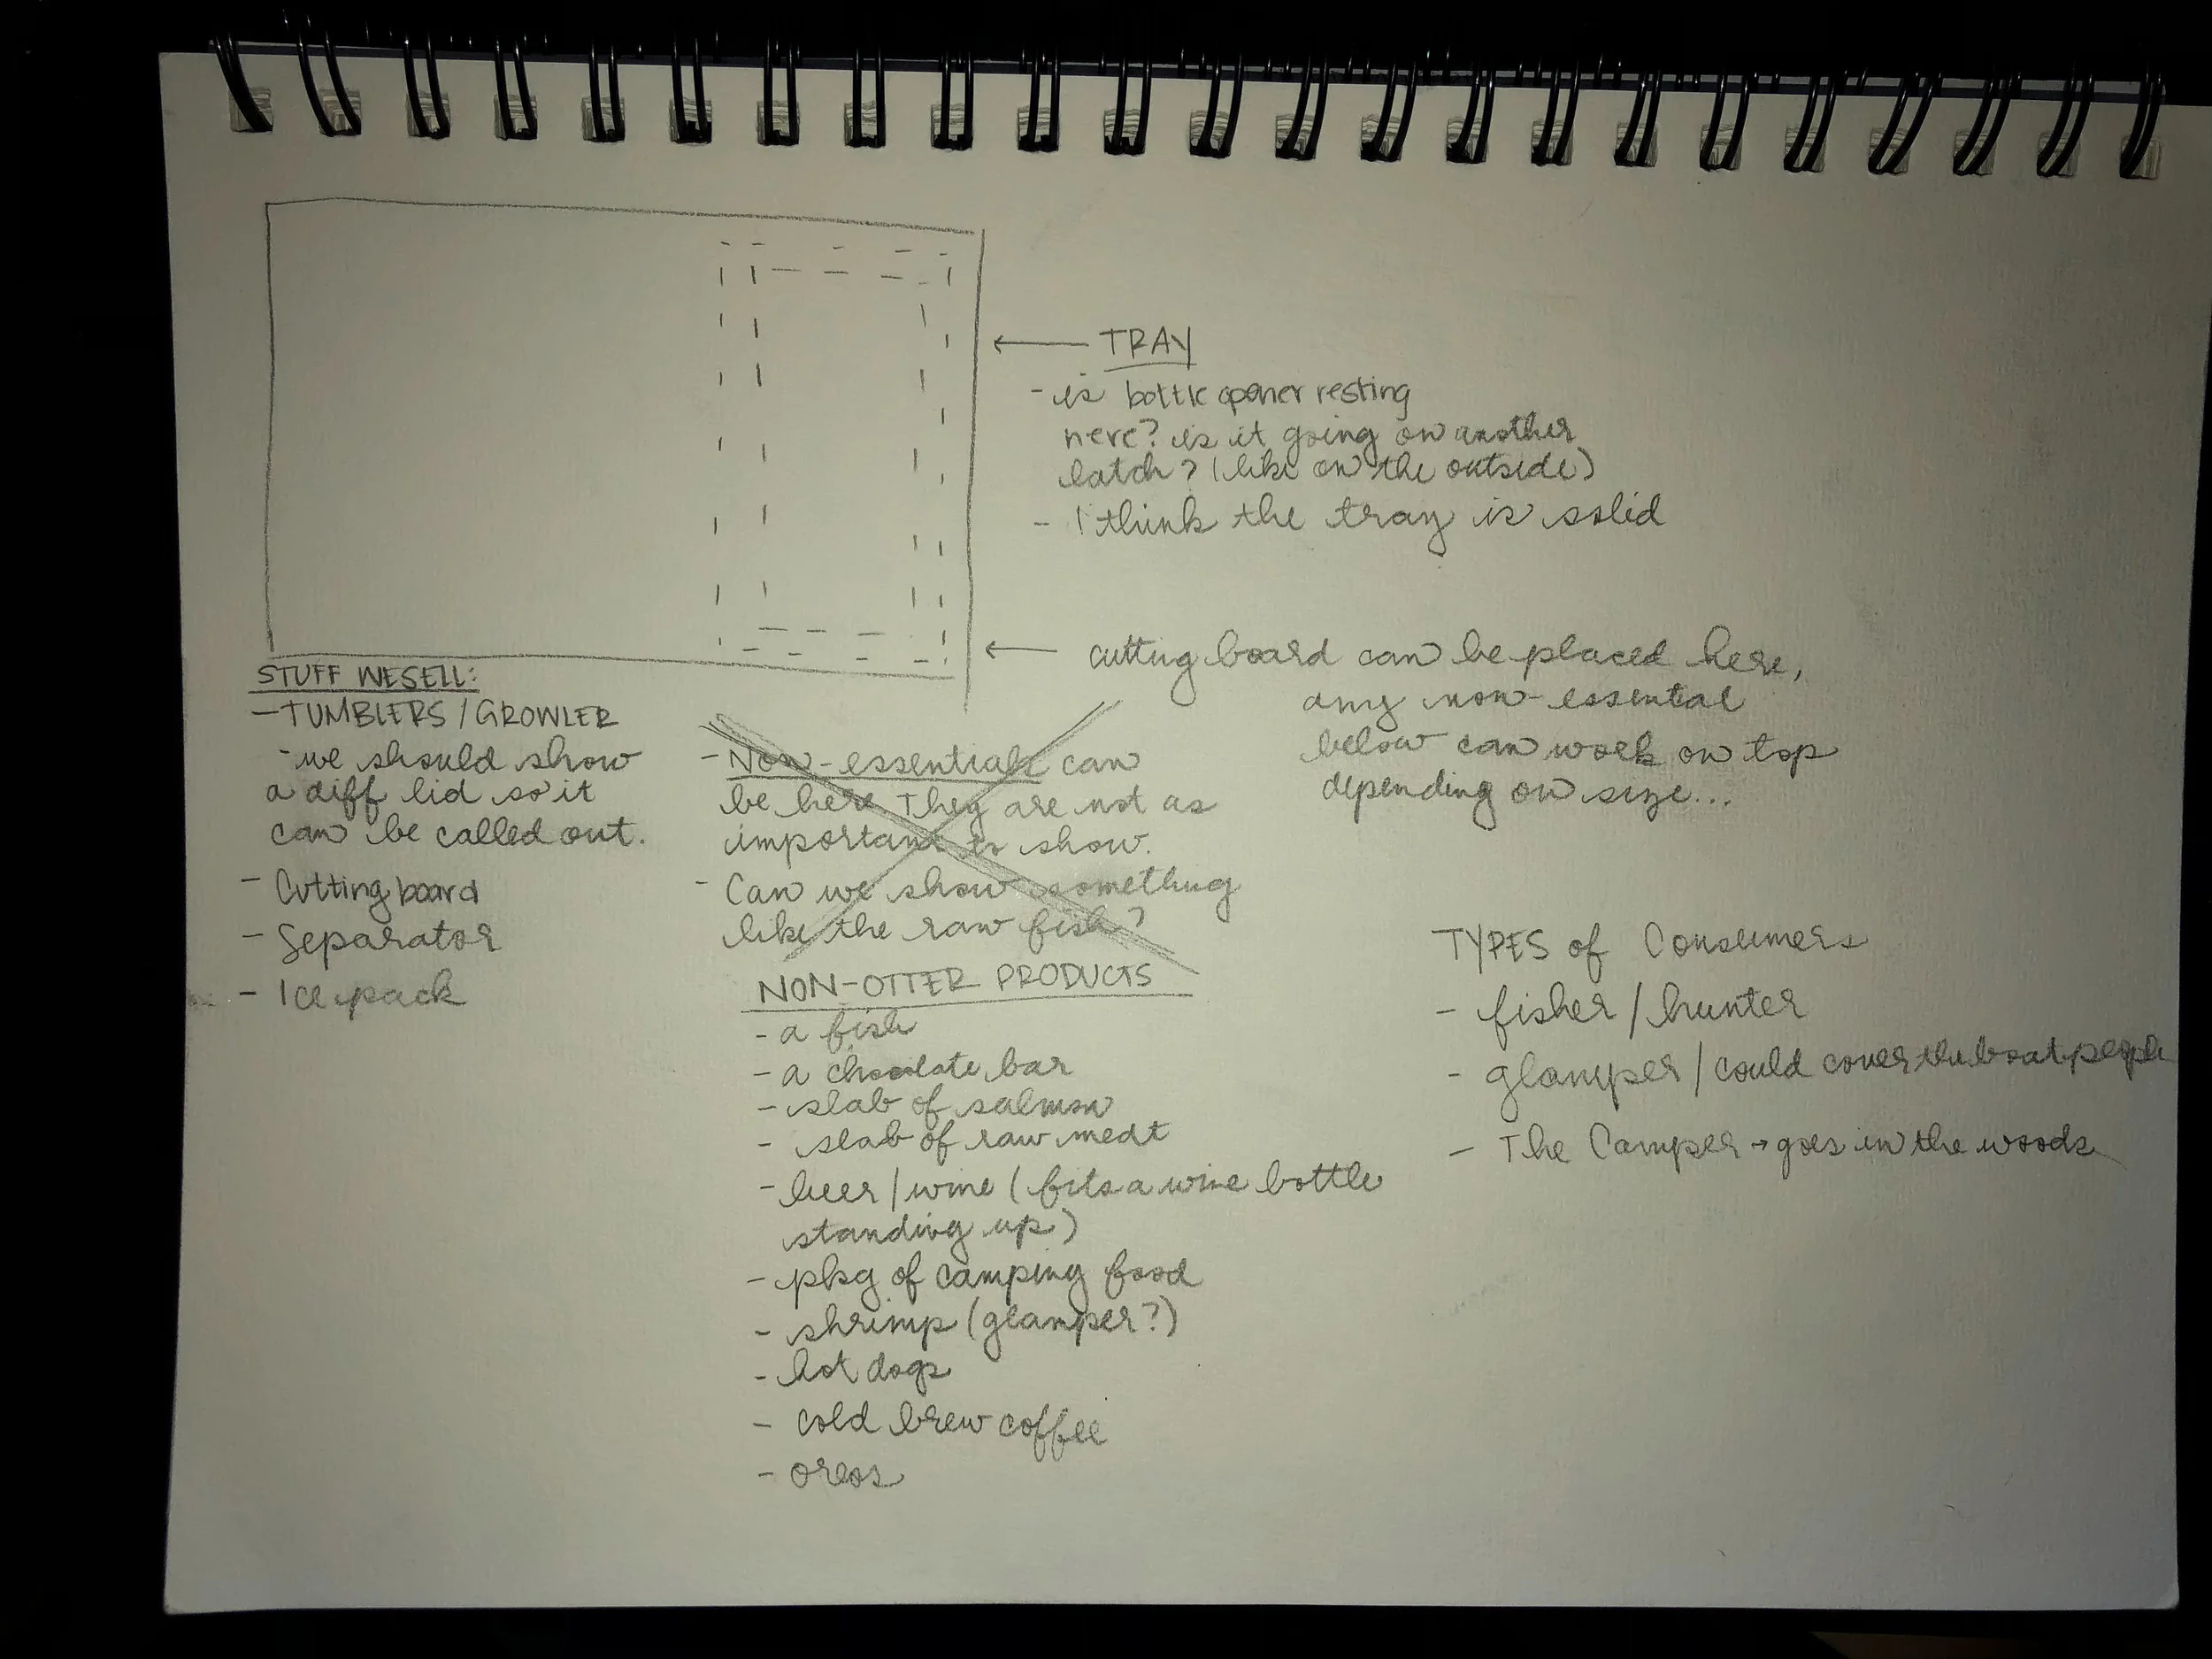 ← TRAY
- is bottle opener resting
here? is it going on another
latch? (like on the outside)
- I think the tray is solid
← cutting board can be placed here,
any non-essential
below can work on top
depending on size...
STUFF WE SELL:
- TUMBLERS / GROWLER
- we should show
a diff lid so it
can be called out.
- Cutting board
- Separator
- Ice pack
- Non-essentials can
be here. They are not as
important to show.
- Can we show something
like the raw fish?
NON-OTTER PRODUCTS
- a fish
- a chocolate bar
- slab of salmon
- slab of raw meat
- beer / wine (fits a wine bottle
standing up)
- pkg of camping food
- shrimp (glamper?)
- hot dogs
- cold brew coffee
- oreos
TYPES of Consumers
- fisher / hunter
- glamper / could cover the boat people
- The Camper → goes in the woods